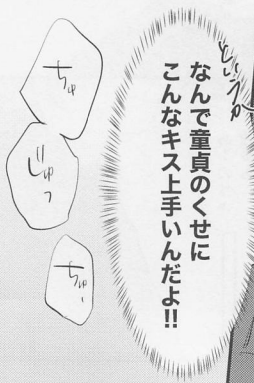 というか
なんで童貞のくせに
こんなキス上手いんだよ!!
ちゅ
じゅっ
ちゅ